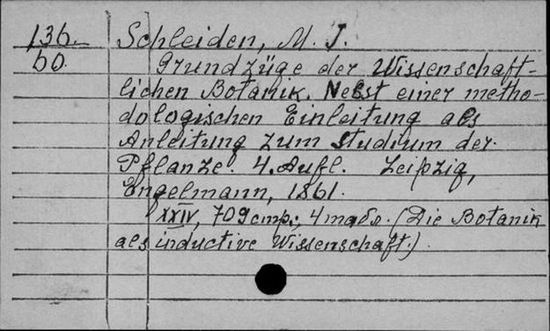 136. Schleiden, M. J.
60. Grundzüge der Wissenschaft-
lichen Botanik. Nebst einer metho-
dologischen Einleitung als
Anleitung zum Studium der
Pflanze. 4. Aufl. Leipzig,
Engelmann, 1861.
XXIV, 709 стр., 4 табл. (Die Botanik
als inductive Wissenschaft).